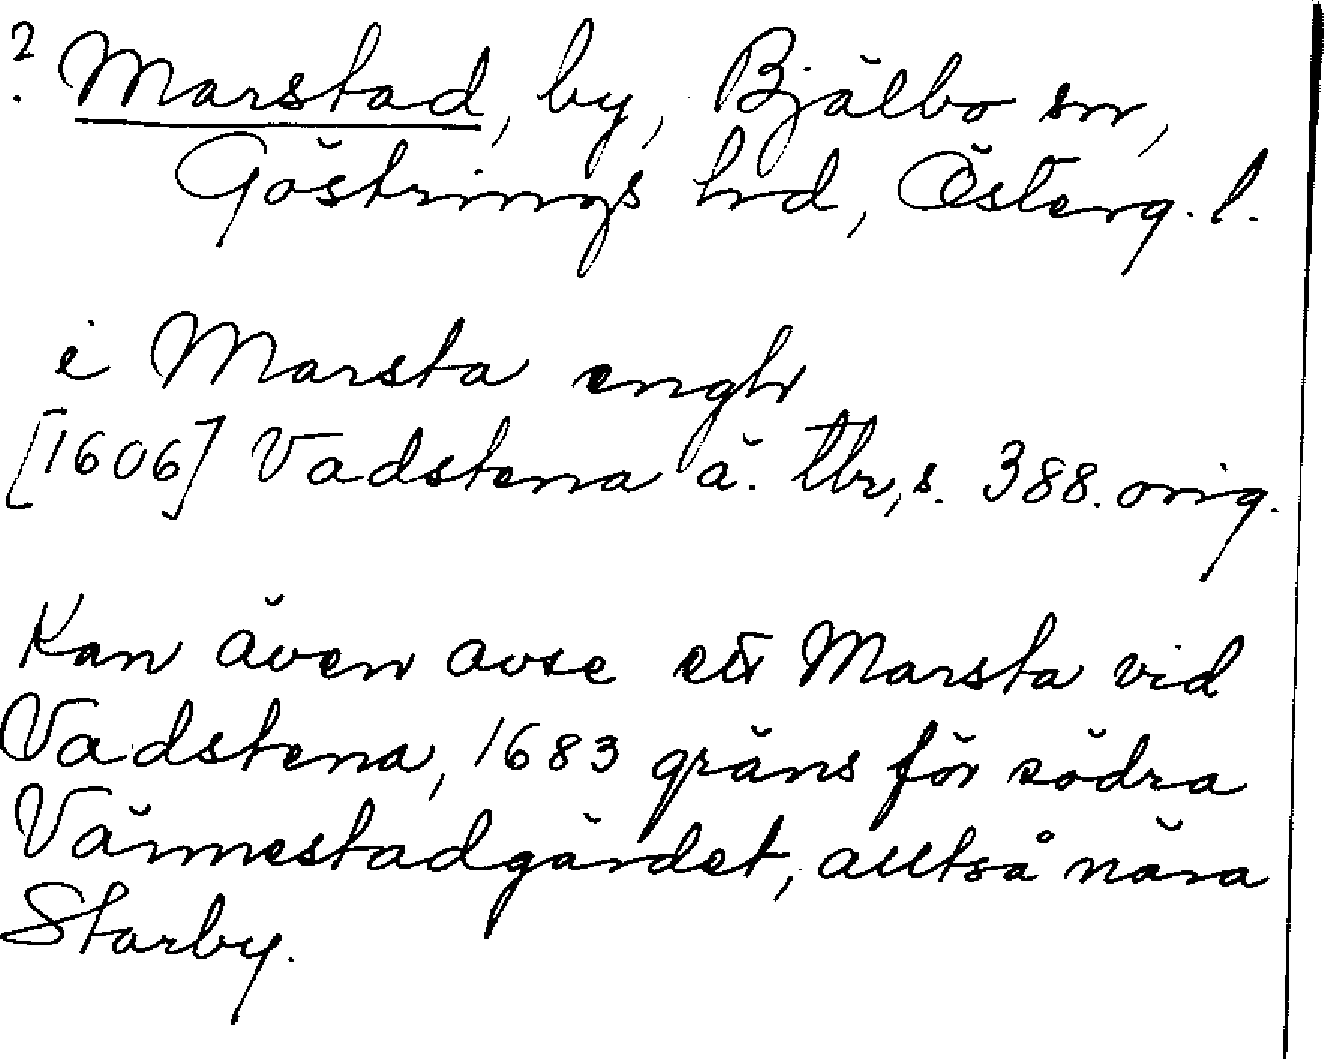 ? Marstad, by, Bjälbo sn,
Göstrings hrd, Österg. l.
i Marsta engh
[1606] Vadstena ä. tbr, s. 388. orig.
Kan även avse ett Marsta vid
Vadstena, 1683 gräns för södra
Värmestadgärdet, alltså nära
Starby.